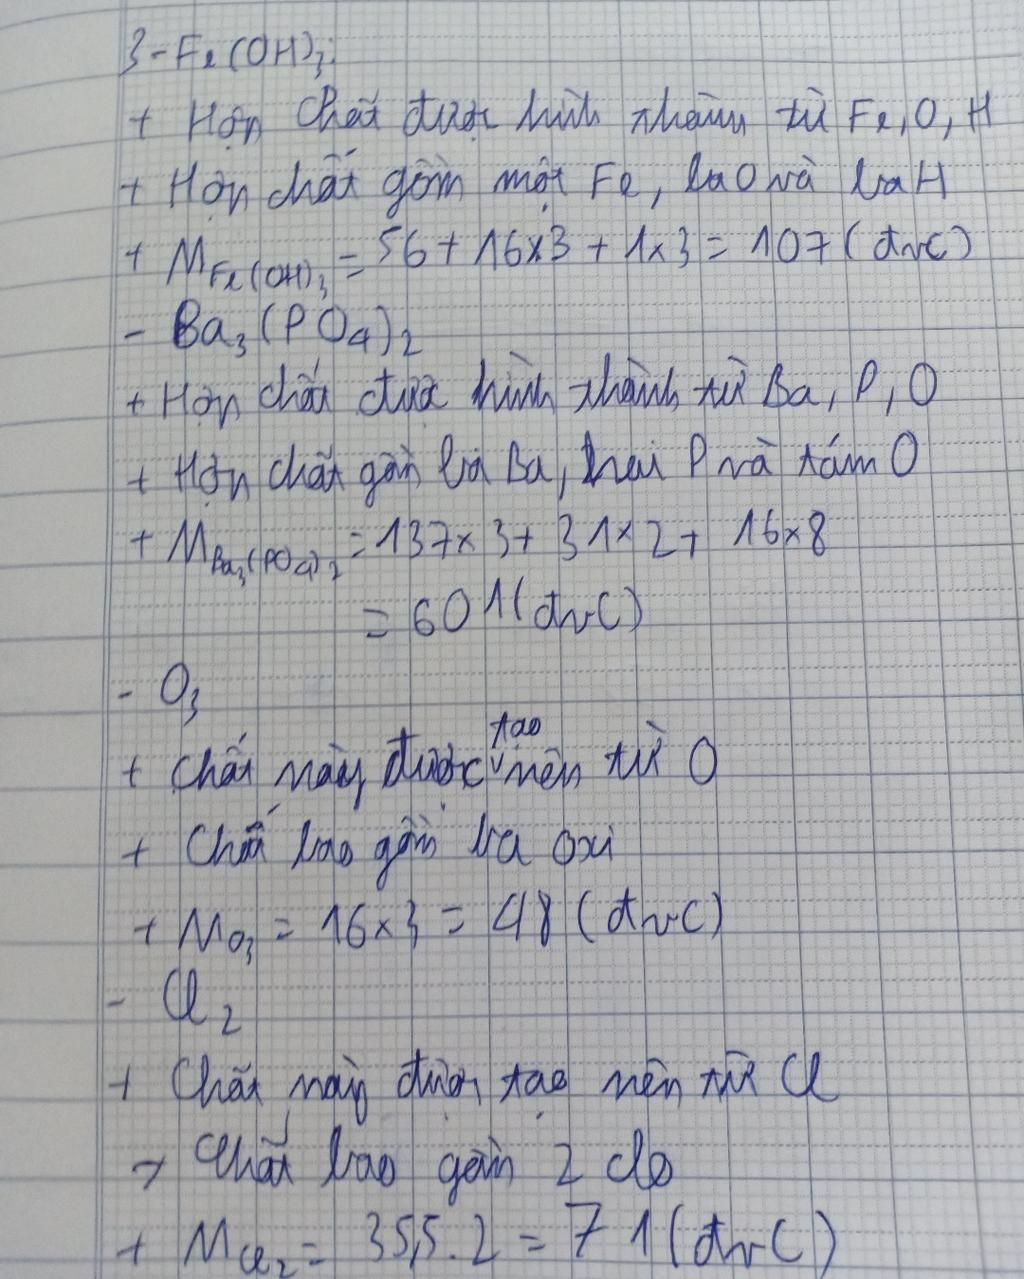 3-Fe(OH)₃:
+ Hợp chất được hình thành từ Fe, O, H
+ Hợp chất gồm một Fe, ba O và ba H
+ M_Fe(OH)₃ = 56 + 16x3 + 1x3 = 107 (đvC)
- Ba₃(PO₄)₂
+ Hợp chất được hình thành từ Ba, P, O
+ Hợp chất gồm ba Ba, hai P và tám O
+ M_Ba₃(PO₄)₂ = 137x3 + 31x2 + 16x8
= 601 (đvC)
- O₃
+ Chất này được tạo nên từ O
+ Chất bao gồm ba oxi
+ M_O₃ = 16x3 = 48 (đvC)
- Cl₂
+ Chất này được tạo nên từ Cl
+ Chất bao gồm 2 clo
+ M_Cl₂ = 35,5.2 = 71 (đvC)